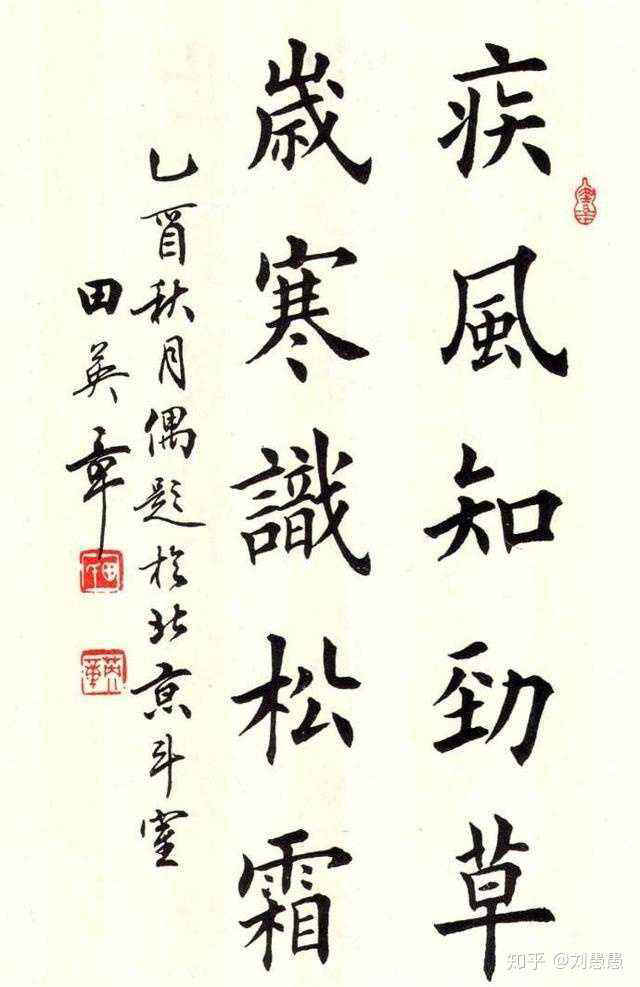 疾風知勁草
歲寒識松霜
乙酉秋月偶題於北京斗室
田英章
知乎 @刘愚愚